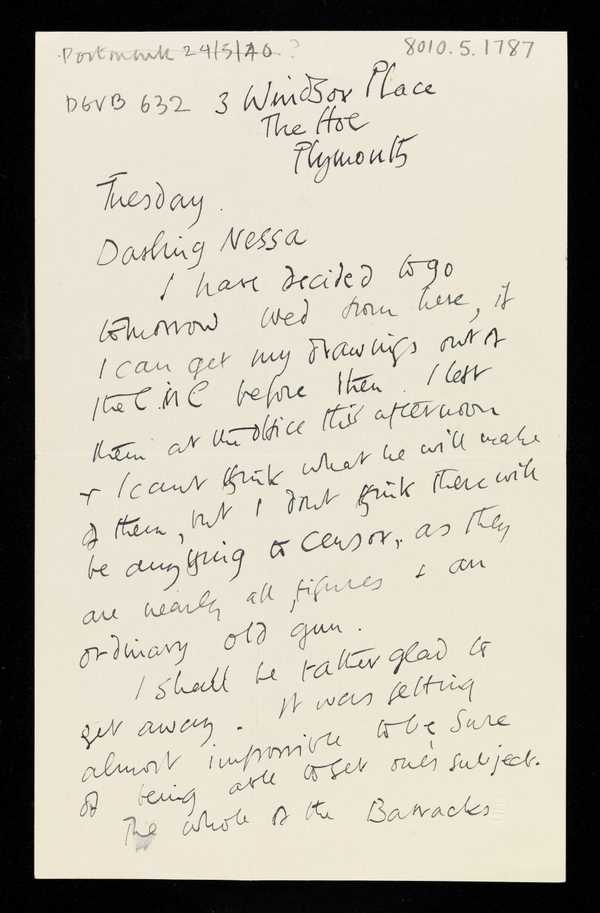 Postmark 24/5/40 ?
8010.5.1787
DGVB 632
3 Windsor Place
The Hoe
Plymouth
Tuesday.
Darling Nessa
I have decided to go
tomorrow Wed from here, if
I can get my drawings out of
the C. in C before then. I left
them at the office this afternoon
+ I cant think what he will make
of them, but I dont think there will
be anything to censor, as they
are nearly all figures + an
ordinary old gun.
I shall be rather glad to
get away. It was getting
almost impossible to be sure
of being able to get one's subject.
The whole of the Barracks